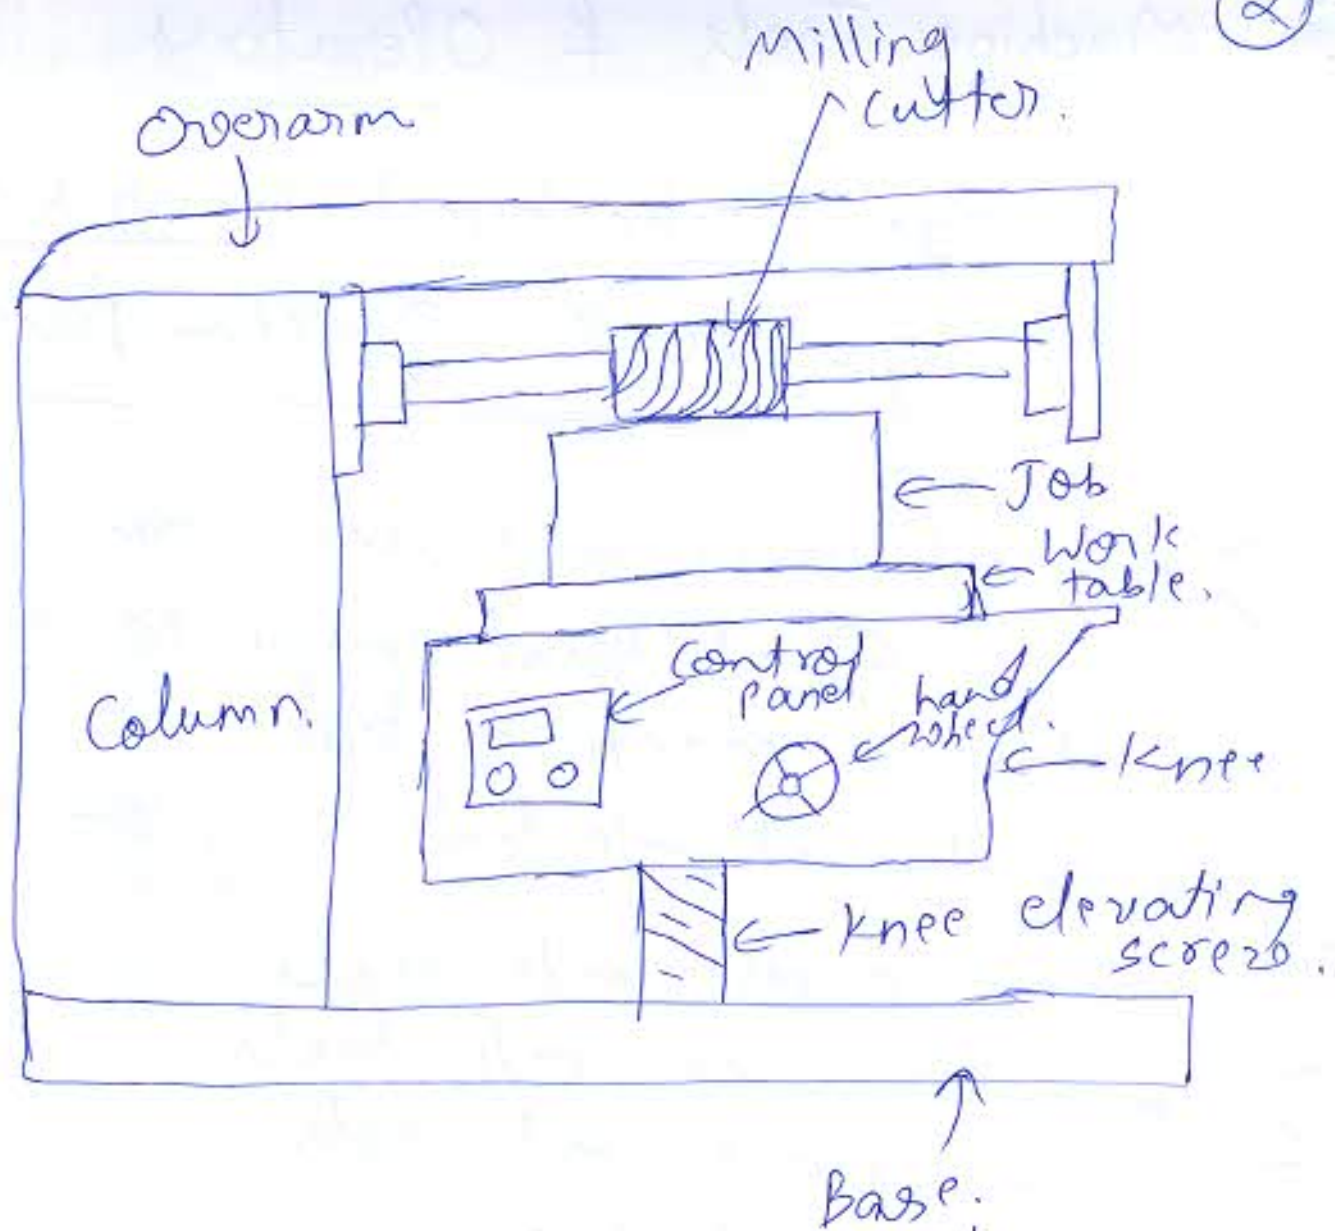 2
Milling
Cutter.
Overarm
Job
Work
table.
Control
Panel
hand
wheel.
Column.
Knee
Knee elevating
screw.
Base.